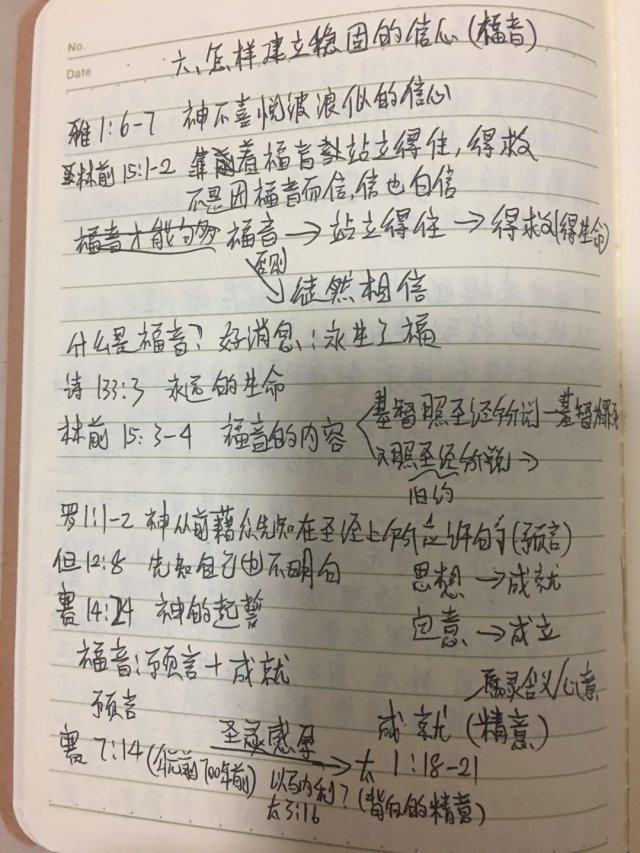 No.
Date
六、怎样建立稳固的信心(福音)
雅1:6-7 神不喜悦波浪似的信心
林前15:1-2 靠着福音站立得住,得救
不是因福音而信,信也白信
福音才能 福音→站立得住→得救(得生命)
否则
徒然相信
什么是福音?好消息:永生之福
诗133:3 永远的生命
林前15:3-4 福音的内容 基督照圣经所说—基督为罪死
又照圣经所说→
旧约
罗1:1-2 神从前藉众先知在圣经上所应许的(预言)
但12:8 先知自己也不明白 思想→成就
賽14:24 神的起誓 定意→成立
福音:预言+成就
属灵含义/心意
预言 成就(精意)
賽7:14(公元前700年前) 圣灵感孕→太1:18-21
以马内利?(背后的精意)
太3:16